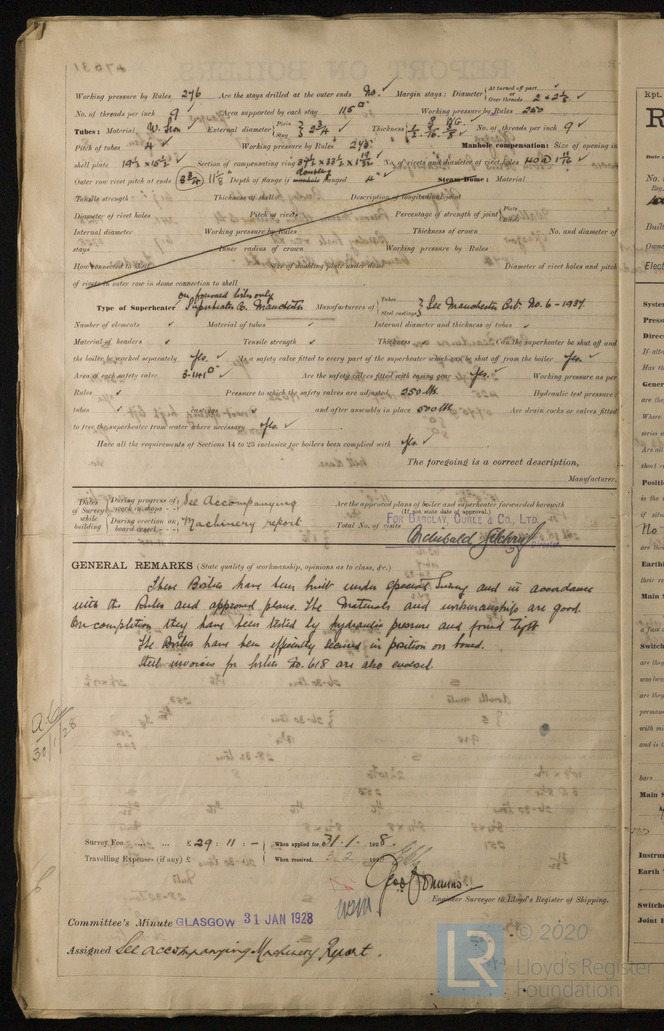 Working pressure by Rules 276 Are the stays drilled at the outer ends No. Margin stays : Diameter { At turned off part, or Over threads 2 & 2 1/8
No. of threads per inch 9 Area supported by each stay 115 Working pressure by Rules 250
Tubes: Material W. Iron External diameter { Plain Stay } 2 3/4 Thickness No. of threads per inch 9
Pitch of tubes 4 Working pressure by Rules Manhole compensation: Size of opening in
shell plate 19 1/2 x 15 1/2 Section of compensating ring No. of rivets and diameter of rivet holes 40 @ 1
Outer row rivet pitch at ends 8 3/4 Depth of flange if manhole flanged 4" Steam Dome : Material
Tensile strength Thickness of shell Description of longitudinal joint
Diameter of rivet holes Pitch of rivets Percentage of strength of joint { Plate
Internal diameter Working pressure by Rules Thickness of crown No. and diameter of
stays Inner radius of crown Working pressure by Rules
How connected to shell Size of doubling plate under dome Diameter of rivet holes and pitch
of rivets in outer row in dome connection to shell
on forward boiler only
Type of Superheater Superheater Co. Manchester Manufacturers of { Tubes Steel castings } See Manchester Rpt. No. 6-1937
Number of elements Material of tubes Internal diameter and thickness of tubes
Material of headers Tensile strength Thickness Can the superheater be shut off and
the boiler be worked separately Yes. Is a safety valve fitted to every part of the superheater which can be shut off from the boiler Yes.
Area of each safety valve Are the safety valves fitted with easing gear Yes. Working pressure as per
Rules Pressure to which the safety valves are adjusted 250 lbs. Hydraulic test pressure :
tubes castings and after assembly in place 500 lbs. Are drain cocks or valves fitted
to free the superheater from water where necessary Yes.
Have all the requirements of Sections 14 to 23 inclusive for boilers been complied with Yes.
The foregoing is a correct description,
Manufacturer.
Dates of Survey while building { During progress of work in shops - - See Accompanying
{ During erection on board vessel - - - Machinery report
Are the approved plans of boiler and superheater forwarded herewith
(If not state date of approval.)
Total No. of visits
FOR BARCLAY, CURLE & CO., LTD.
Archibald Gilchrist
Director
GENERAL REMARKS (State quality of workmanship, opinions as to class, &c.)
These Boilers have been built under special Survey and in accordance
with the Rules and approved plans. The Materials and workmanship are good.
On completion they have been tested by hydraulic pressure and found tight
The Boilers have been efficiently secured in position on board.
Steel invoices for boiler No. 618 are also enclosed.
30/1/28
Survey Fee ... ... £ 29 : 11 : - When applied for, 31.1.1928.
Travelling Expenses (if any) £ : : When received,
Engineer Surveyor to Lloyd's Register of Shipping.
Committee's Minute GLASGOW 31 JAN 1928
Assigned See accompanying Machinery Report.
LR © 2020
Lloyd's Register
Foundation